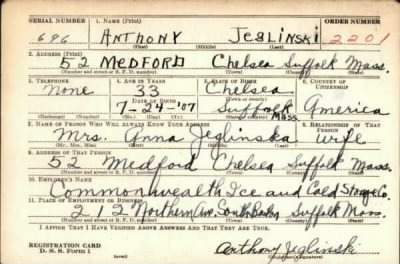 SERIAL NUMBER 1. NAME (Print) ORDER NUMBER
696 ANTHONY JEGLINSKI 2201
(First) (Middle) (Last)
2. ADDRESS (Print)
52 MEDFORD Chelsea Suffolk Mass.
(Number and street or R. F. D. number) (Town) (County) (State)
3. TELEPHONE 4. AGE IN YEARS 5. PLACE OF BIRTH 6. COUNTRY OF CITIZENSHIP
None 33 Chelsea
DATE OF BIRTH (Town or county)
7-24-'07 Suffolk Mass America
(Exchange) (Number) (Mo.) (Day) (Yr.) (State or country)
7. NAME OF PERSON WHO WILL ALWAYS KNOW YOUR ADDRESS 8. RELATIONSHIP OF THAT PERSON
Mrs. Anna Jeglinska Wife
(Mr., Mrs., Miss) (First) (Middle) (Last)
9. ADDRESS OF THAT PERSON
52 Medford Chelsea Suffolk Mass.
(Number and street or R. F. D. number) (Town) (County) (State)
10. EMPLOYER'S NAME
Commonwealth Ice and Cold Storage Co.
11. PLACE OF EMPLOYMENT OR BUSINESS
212 Northern Ave. South Boston Suffolk Mass.
(Number and street or R. F. D. number) (Town) (County) (State)
I AFFIRM THAT I HAVE VERIFIED ABOVE ANSWERS AND THAT THEY ARE TRUE.
REGISTRATION CARD
D. S. S. Form 1 Anthony Jeglinski
(Registrant's signature)